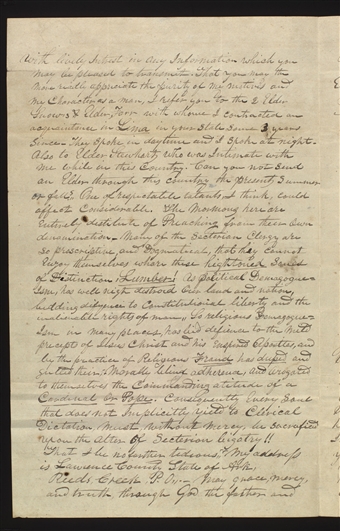 with lively Intrest in any Information which you
may be pleased to transmit. That you may the
more well appriciate the purity of my motives and
my Character as a man, I refer you to the 2 Elder
Snows & Elder Farr with whome I contracted an
acquaintance in Lima in your State Some 3 years
Since. They Spoke in daytime and I Spoke at night.
Also to Elder who was Intimate with
me while in this Country. Can you not Send
an Elder through this country the present Summer
or fall? One of respectable talents I think, could
affect Considerable. The Mormons here are
Entirely destitute of Preaching from their own
denomination. Many of the Sectarian Clergy are
So proscriptive and Dogmatical, that they cannot
bear themselves when these frightened
of Distinction Slumber! As political Demagogue-
Ism, has well nigh destroid Our land and nation,
bidding defiance to Constitutional liberty and the
inalienable rights of man; So religious Demagogue-
Ism in many places, has bid defience to the
precepts of Jesus Christ and his Inspired Apostles, and
by the practice of Religious Fraud has duped and
their Morally blind adherence, and arrogated
to themselves the Commanding atitude of a
Cardinal or Pope. Consequently Every Zone
that does not Implicitly yield to Clerical
Dictation Must, without mercy, be sacrifised
upon the alter of Sectorian bigotry!!
That I be no further tedious; My address
is Lawrence County State of Ark,
Reeds Creek P. O. — May grace, mercy,
and truth, through God the father and